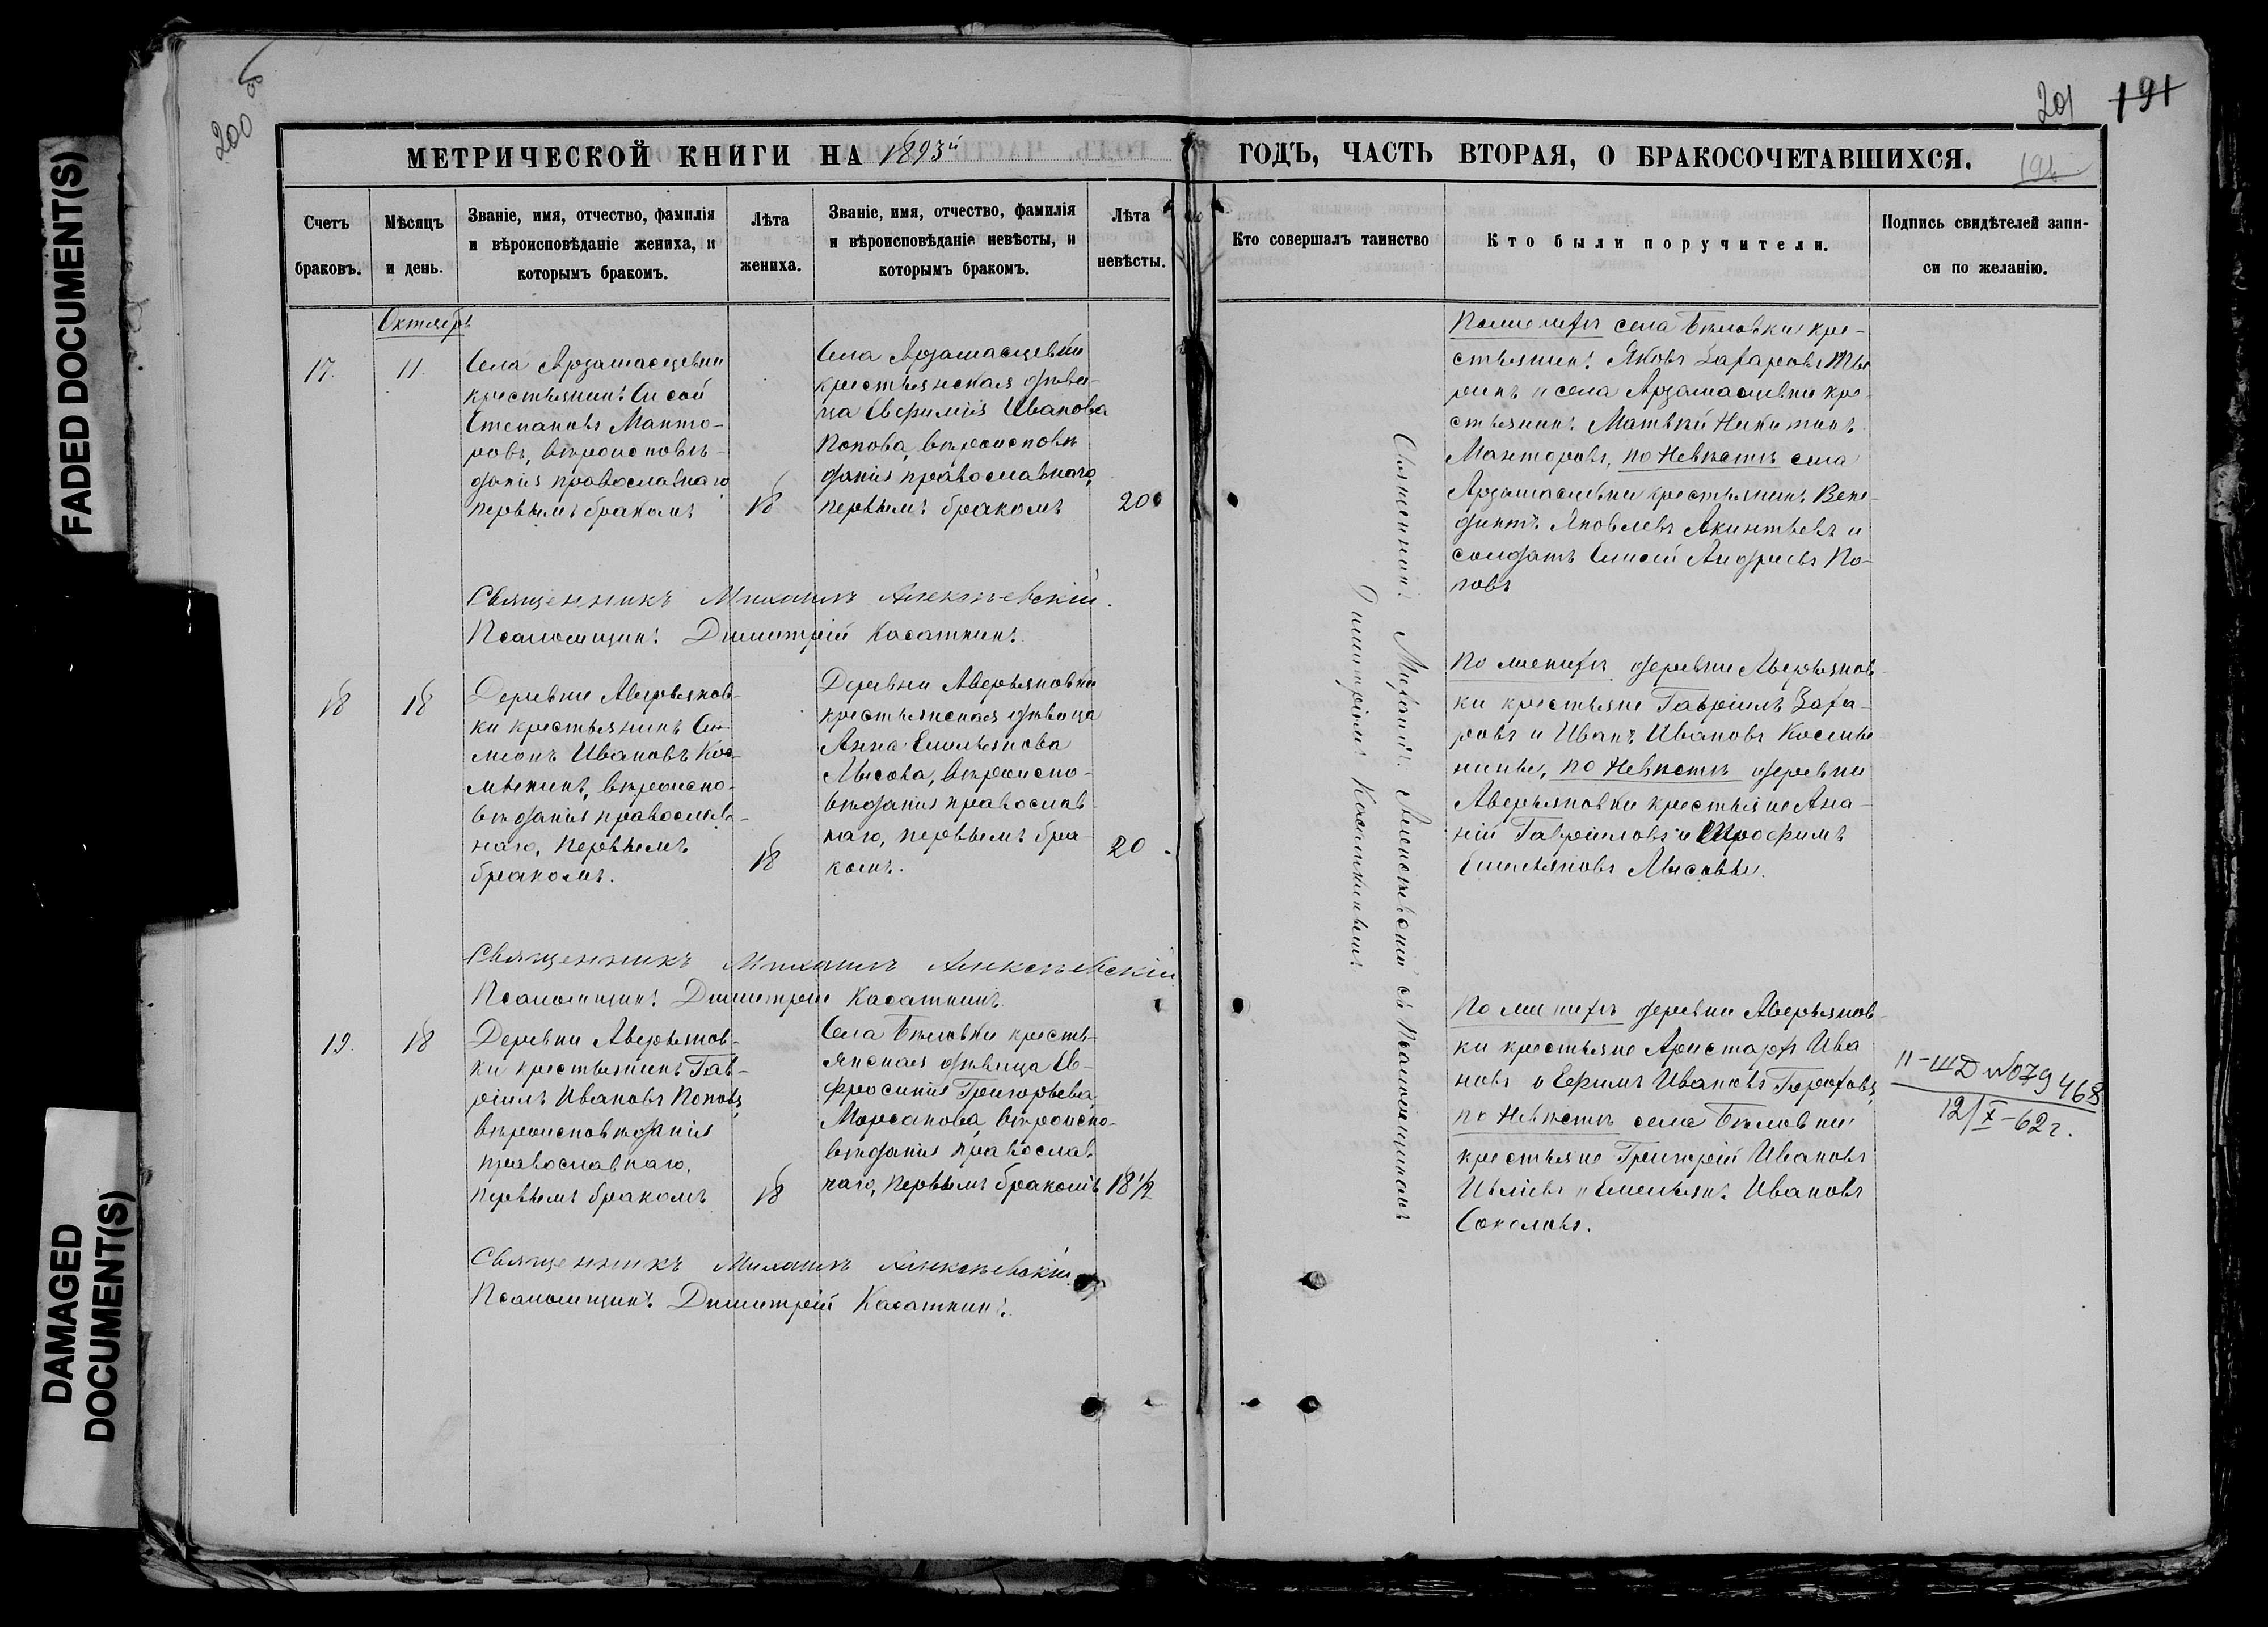 FADED DOCUMENT(S)
DAMAGED
DOCUMENT(S)
200 об
201
191
МЕТРИЧЕСКОЙ КНИГИ НА 1893й
ГОДЪ, ЧАСТЬ ВТОРАЯ, О БРАКОСОЧЕТАВШИХСЯ.
Счетъ
браковъ.
Мѣсяцъ
и день.
Званіе, имя, отчество, фамилія
и вѣроисповѣданіе жениха, и
которымъ бракомъ.
Лѣта
жениха.
Званіе, имя, отчество, фамилія
и вѣроисповѣданіе невѣсты, и
которымъ бракомъ.
Лѣта
невѣсты.
Кто совершалъ таинство
Кто были поручители.
Подпись свидѣтелей запи-
си по желанію.
Октябрь
17.
11.
Села Арзамасцевки
крестьянинъ Сисой
Степановъ Манто-
ровъ, вѣроисповѣ-
данія православнаго
первымъ бракомъ
18
Села Арзамасцевки
крестьянская дѣви-
ца Евфимія Иванова
Попова, вѣроисповѣ
данія православнаго,
первымъ бракомъ
20
По женихѣ села Бѣловки кре-
стьянинъ Яковъ Захаровъ
и села Арзамасцевки кре-
стьянинъ Матвѣй Никитинъ
Манторовъ, по Невѣстѣ села
Арзамасцевки крестьянинъ Вене-
диктъ Яковлевъ Акинтьевъ и
солдатъ Елисей Андреевъ По-
повъ
Священникъ Михаилъ Алексѣевскій.
Псаломщикъ Димитрій Касаткинъ.
18
18
Деревни Аверьянов-
ки крестьянинъ Си-
меонъ Ивановъ Кос-
мынинъ, вѣроиспо-
вѣданія православ-
наго, первымъ
бракомъ.
18
Деревни Аверьяновки
крестьянская дѣвица
Анна Емельянова
Лысова, вѣроиспо-
вѣданія православ
наго, первымъ бра-
комъ.
20
По женихѣ деревни Аверьянов-
ки крестьяне Гавріилъ Заха-
ровъ и Иванъ Ивановъ Косми-
нины, по Невѣстѣ деревни
Аверьяновки крестьяне Ана-
ній Гавріиловъ и Трофимъ
Емельяновъ Лысовы.
Священникъ Михаилъ Алексѣевскій
Псаломщикъ Димитрій Касаткинъ.
19.
18
Деревни Аверьянов-
ки крестьянинъ Гав-
ріилъ Ивановъ Поповъ,
вѣроисповѣданія
православнаго,
первымъ бракомъ
18
Села Бѣловки кресть-
янская дѣвица Ев-
фросинія Григорьева
Морсанова, вѣроиспо-
вѣданія православ
наго, первымъ бракомъ
18½
По женихѣ деревни Аверьянов-
ки крестьяне Аристархъ Ива
новъ и Ефимъ Ивановъ
по Невѣстѣ села Бѣловки
крестьяне Григорій Ивановъ
и Емельянъ Ивановъ
Соколовъ.
II-ШД №079468
12/X-62г.
Священникъ Михаилъ Алексѣевскій
Псаломщикъ Димитрій Касаткинъ.
Священникъ Михаилъ Алексѣевскій съ Псаломщикомъ
Димитріемъ Касаткинымъ